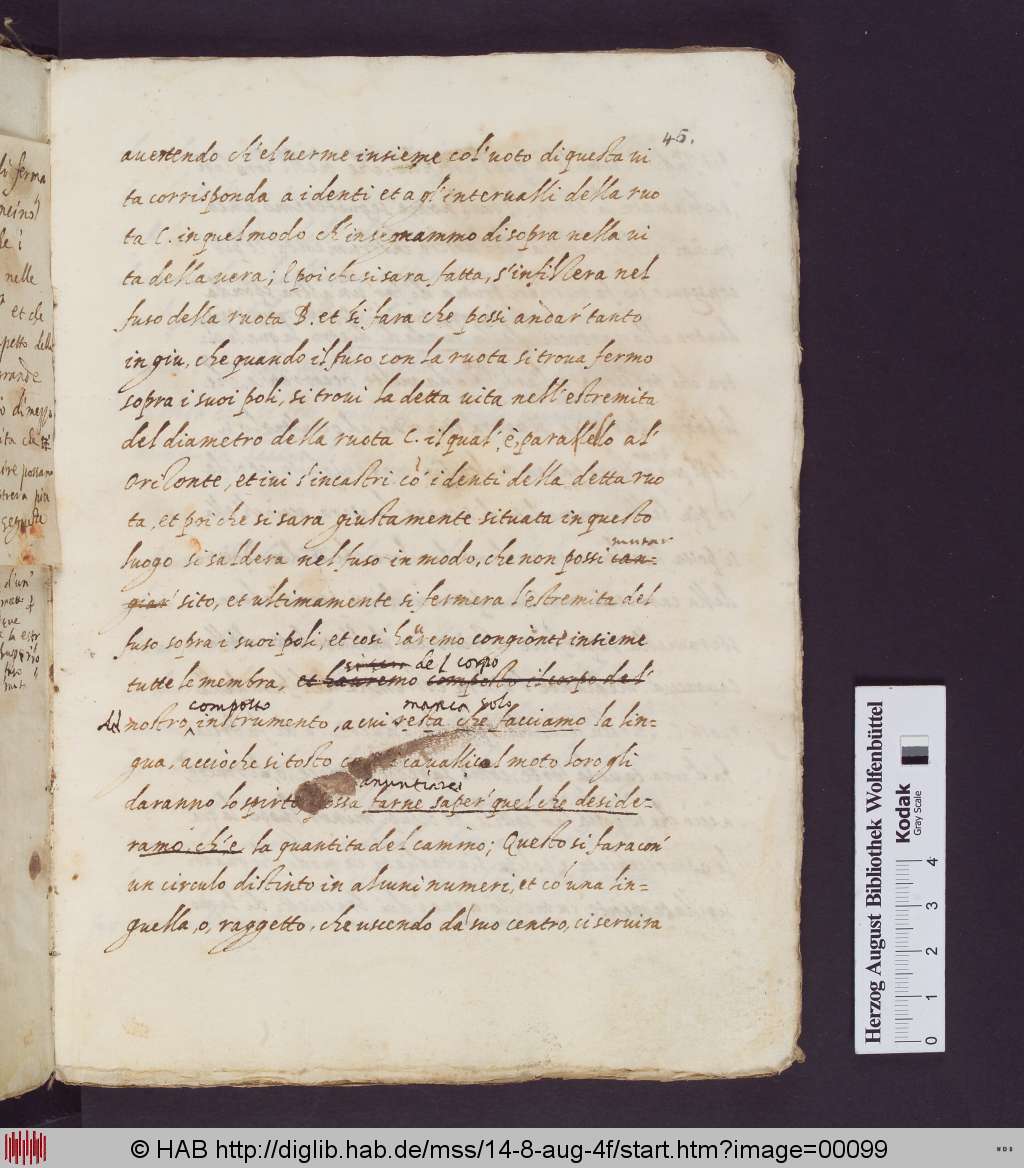 45.
auertendo ch'el uerme insieme col' uoto di questa ui
ta corrisponda a i denti et a gl' interualli della ruo
ta C. in quel modo ch' insegnammo di sopra nella ui
ta della uera; E poi che si sara fatta, s'infilZera nel
fuso della ruota B. et si fara che possi andar' tanto
in giu, che quando il fuso con la ruota si troua fermo
sopra i suoi poli, si troui la detta uita nell' estremita
del diametro della ruota C. il qual' è parallelo al'
OriZonte, et iui s'incastri cõ i denti della detta ruo
ta, et poi che si sara giustamente situata in questo
mutar
luogo si saldera nel fuso in modo, che non possi can=
giar' sito, et ultimamente si fermera l'estremita del
fuso sopra i suoi poli, et cosi haueremo congionte insieme
del corpo
tutte le membra, et haueremo composto il corpo del'
composto manca solo
nostro instrumento, a cui resta che facciamo la lin=
gua, accioche si tosto caualli col moto loro gli
anuntiarci
daranno lo spirto possa farne saper' quel che deside=
ramo, ch'è la quantita del camino; Questo si fara con'
un circulo distinto in alcuni numeri, et cõ una lin=
guella, o, raggetto, che uscendo dal suo centro, ci seruira
di ferma
nelle
et che
petto della
grande
ire possano
d'un'
Herzog August Bibliothek Wolfenbüttel
Kodak
Gray Scale
0 1 2 3 4
© HAB http://diglib.hab.de/mss/14-8-aug-4f/start.htm?image=00099